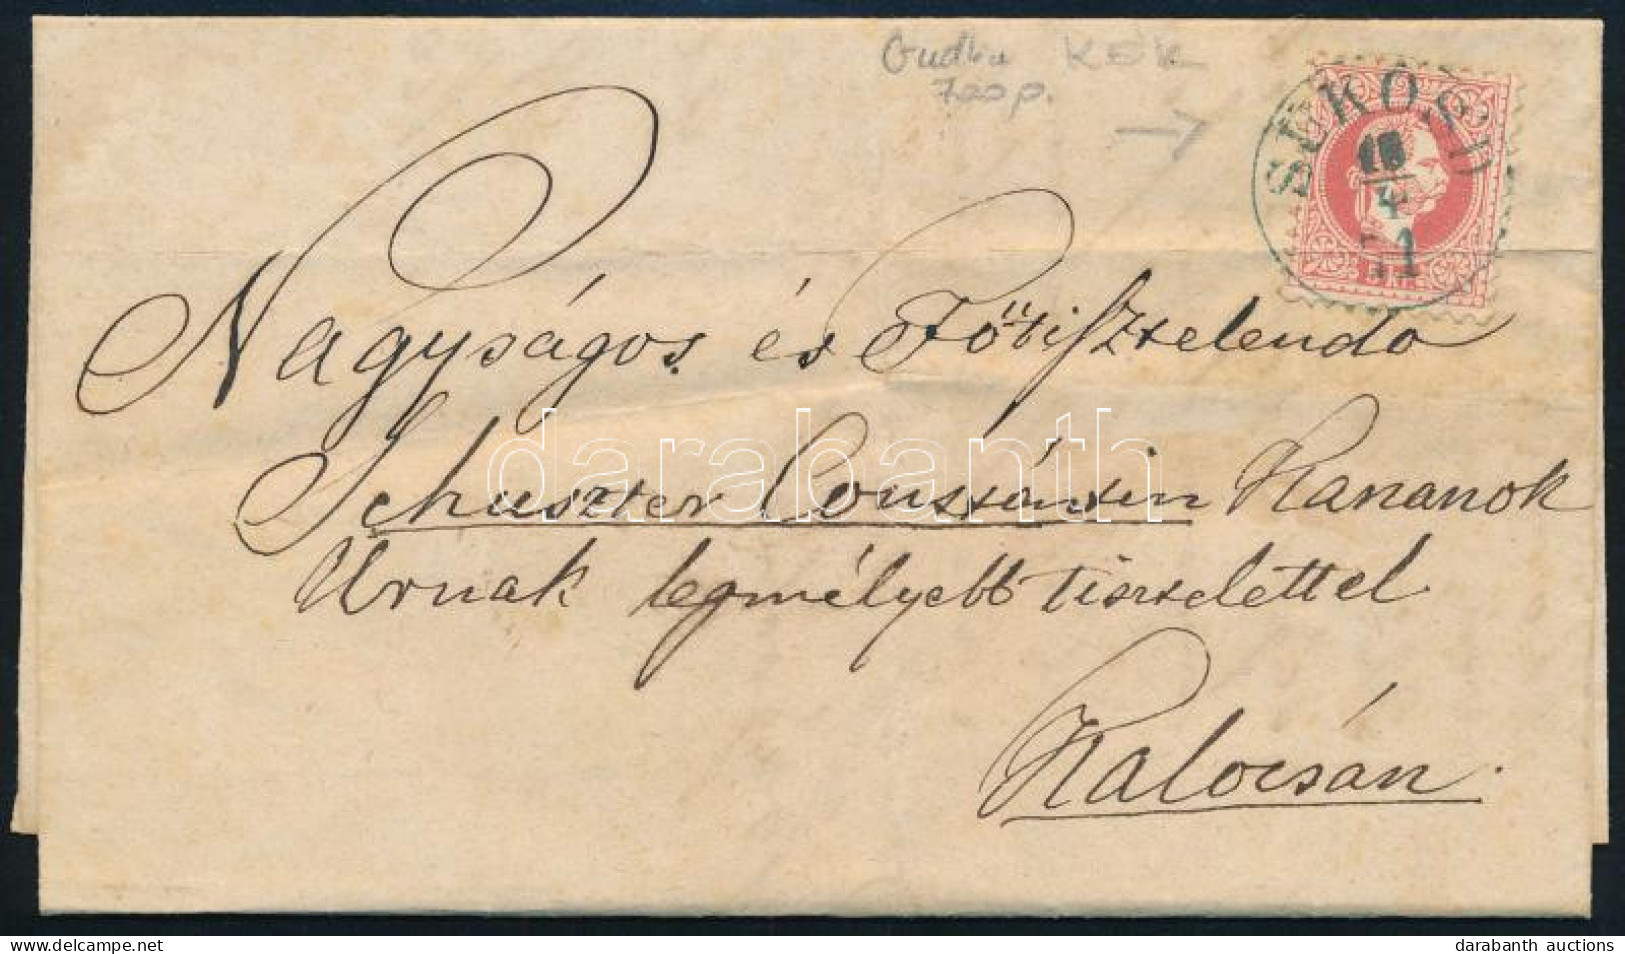 Gudlin KÉK
700 p.
SÜKÖSD
18
4
71
5 KR.
Nagyságos és Főtisztelendo
Schuszter Constántin Kananok
Urnak legmélyebb tisztelettel
Kalocsán.
darabanth
delcampe.net
darabanth auctions